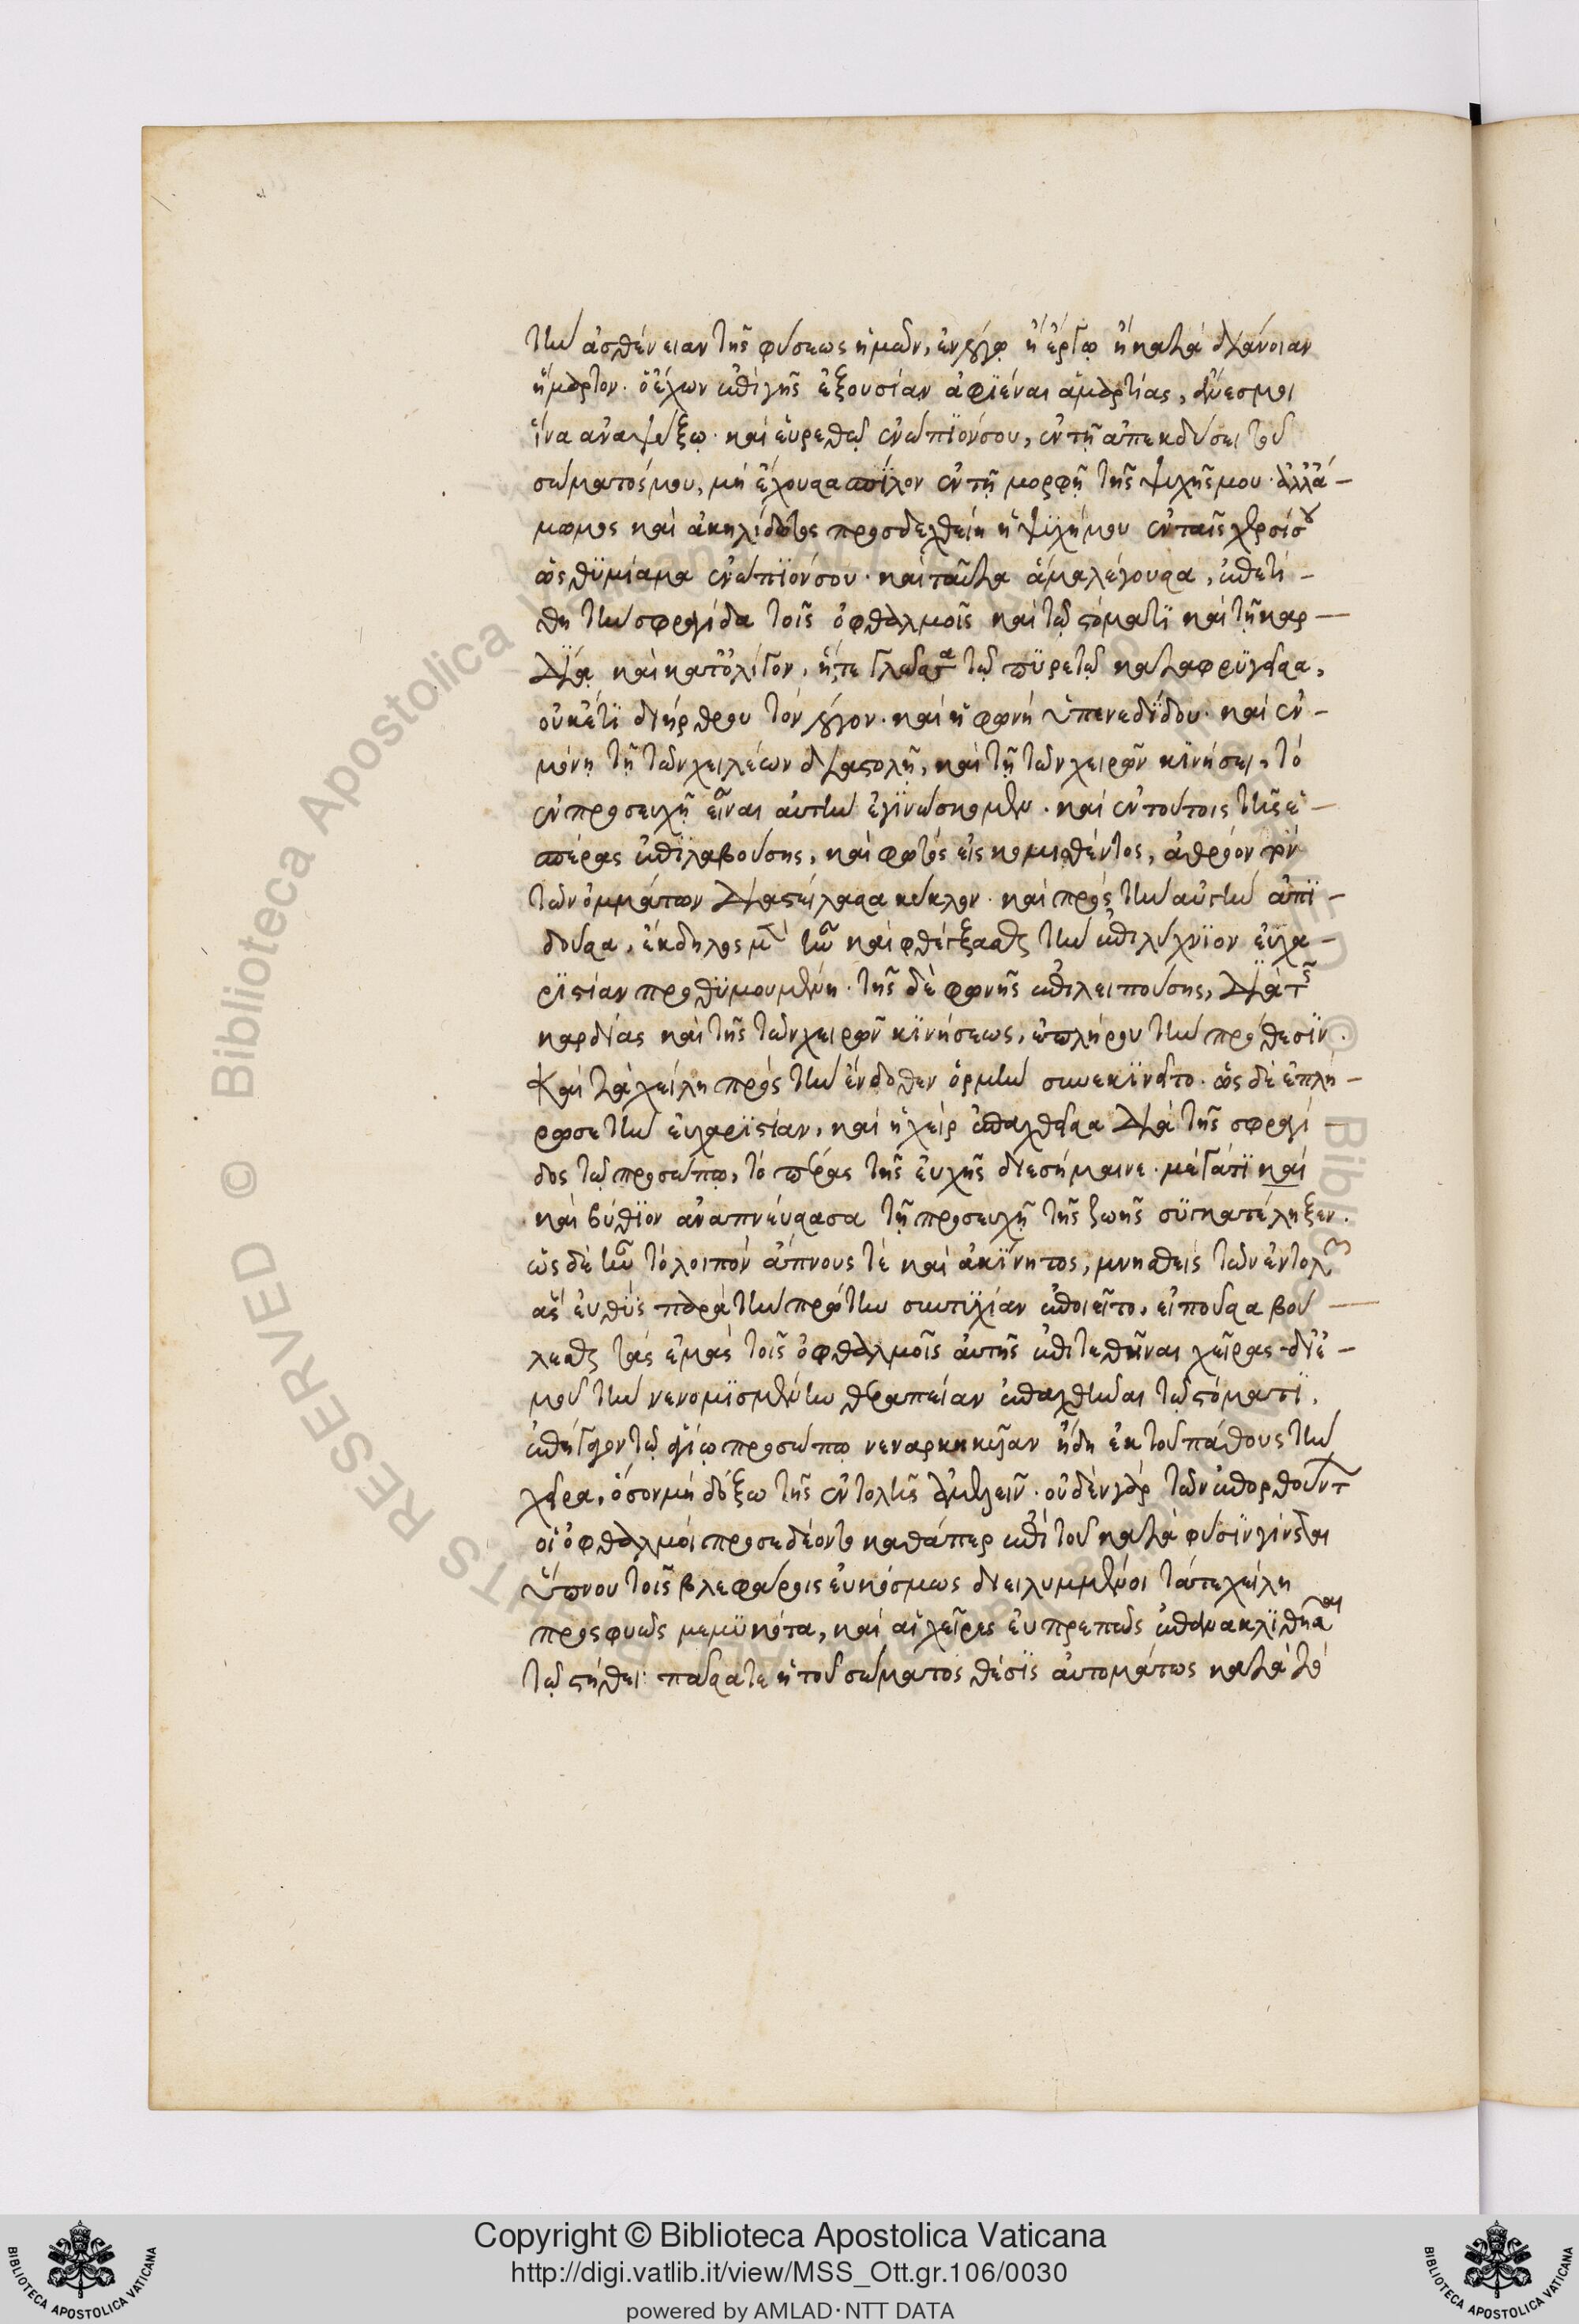 τὴν ἀσθένειαν τῆς φύσεως ἡμῶν, ἐν λόγῳ ἢ ἔργῳ ἢ κατὰ διάνοιαν
ἥμαρτον. ὁ ἔχων ἐπὶ γῆς ἐξουσίαν ἀφϊέναι ἁμαρτίας, ἄνες μοι
ἵνα αναψύξω. καὶ εὑρεθῶ ἐνώπϊόν σου, ἐν τῇ ἀπεκδύσει τοῦ
σώματός μου, μὴ ἔχουσα σπίλον ἐν τῇ μορφῇ τῆς ψυχῆς μου. ἀλλ' ἄ-
μωμος καὶ ἀκηλίδωτος προσδεχθείη ἡ ψϋχή μου ἐν ταῖς χερσί σου
ὡς θϋμίαμα ἐνώπϊόν σου. καὶ ταῦτα ἅμα λέγουσα, ἐπετί-
θη τὴν σφραγίδα τοῖς ὀφθαλμοῖς καὶ τῷ στόματϊ καὶ τῇ καρ-
δΐᾳ καὶ κατ' ὀλίγον, ἥτε γλῶσσα τῷ πϋρετῷ καταφρϋγεῖσα,
οὐκέτϊ διήρθρου τὸν λόγον. καὶ ἡ φωνὴ ὑπενεδίδου. καὶ ἐν-
μόνῃ τῇ τῶν χειλέων διαστολῇ, καὶ τῇ τῶν χειρῶν κϊνήσει, τὸ
ἐν προσευχῇ εἶναι αὐτὴν ἐγϊνώσκομεν. καὶ ἐν τούτοις τῆς ἑ-
σπέρας ἐπϊλαβούσης, καὶ φωτὸς εἰσκομισθέντος, ἀθρόον τὸν
τῶν ὀμμάτων διαστείλασα κύκλον. καὶ πρὸς τὴν αὐγὴν ἀπϊ-
δοῦσα, ἔκδηλος μὲν ἦν καὶ φθέγξασθαι τὴν ἐπιλύχνϊον εὐχα-
ρϊστίαν προθϋμουμένη. τῆς δὲ φωνῆς ἐπιλειπούσης, διὰ τῆς
καρδίας καὶ τῆς τῶν χειρῶν κϊνήσεως, ἐπλήρου τὴν πρόθεσϊν.
Καὶ τὰ χείλη πρὸς τὴν ἔνδοθεν ὁρμὴν συνεκϊνεῖτο. ὡς δὲ ἐπλή-
ρωσε τὴν εὐχαρϊστίαν, καὶ ἡ χεὶρ ἐπαχθεῖσα διὰ τῆς σφραγί-
δος τῷ προσώπῳ, τὸ πέρας τῆς εὐχῆς διεσήμαινε. μέγα τϊ καὶ
καὶ βύθϊον ἀναπνεύσασα τῇ προσευχῇ τῆς ζωῆς σϋγκατέληξεν.
ὡς δὲ ἦν τὸ λοιπὸν ἄπνους τὲ καὶ ἀκίνητος, μνησθεὶς τῶν ἐντολῶν
ἃς εὐθϋς παρὰ τὴν πρώτην συντϋχίαν ἐποιεῖτο, εἰποῦσα βού-
λεσθαι τὰς ἐμὰς τοῖς ὀφθαλμοῖς αὐτῆς ἐπιτεθῆναι χεῖρας δι' ἐ-
μοῦ τὴν νενομϊσμένην θεραπείαν ἐπαχθῆναι τῷ σώματϊ.
ἐπήγαγον τῷ ἁγίῳ προσώπῳ νεναρκηκυῖαν ἤδη ἐκ τοῦ πάθους τὴν
χεῖρα, ὅσον μὴ δόξω τῆς ἐντολῆς ἀμελεῖν. οὐδὲν γὰρ τῶν ἐπορθούντων
οἱ ὀφθαλμοὶ προσεδέοντο καθάπερ ἐπὶ τοῦ κατὰ φύσϊν γίνεται
ὕπνου τοῖς βλεφάροις εὐκόσμως διειλημμένοι τά τε χείλη
προσφυῶς μεμϋκότα, καὶ αἱ χεῖρες εὐπρεπῶς ἐπανακλϊθεῖσαι
τῷ στήθει πᾶσα τε ἡ τοῦ σώματος θέσϊς αὐτομάτως κατὰ τὸ
Copyright © Biblioteca Apostolica Vaticana
http://digi.vatlib.it/view/MSS_Ott.gr.106/0030
powered by AMLAD·NTT DATA